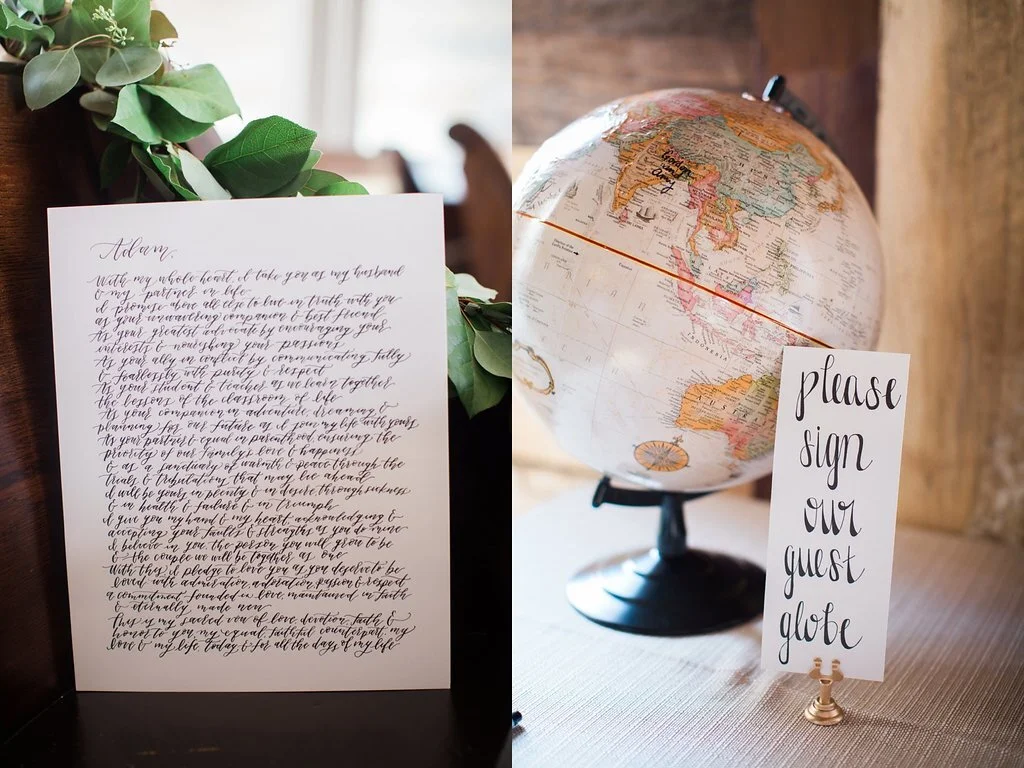 Adam,
With my whole heart, I take you as my husband
& my partner in life
I promise above all else to live in truth with you
as your unwavering companion & best friend
As your greatest advocate by encouraging your
interests & nourishing your passions
As your ally in conflict by communicating fully
& fearlessly with purity & respect
As your student & teacher as we learn together
the lessons of the classroom of life
As your companion in adventure, dreaming &
planning for our future as I join my life with yours
As your partner & equal in parenthood, ensuring the
priority of our family's love & happiness
& as a sanctuary of warmth & peace through the
trials & tribulations that may lie ahead
I will be yours in plenty & in desire, through sickness
& in health & failure & in triumph
I give you my hand & my heart, acknowledging &
accepting your faults & strengths as you do mine
I believe in you, the person you will grow to be
& the couple we will be together as one
With this, I pledge to love you as you deserve to be
loved with admiration, adoration, passion & respect
a commitment founded in love, maintained in faith
& eternally made new
This is my sacred vow of love, devotion, faith &
honor to you, my equal, faithful counterpart, my
love & my life, today & for all the days of my life
INDONESIA
please
sign
our
guest
globe